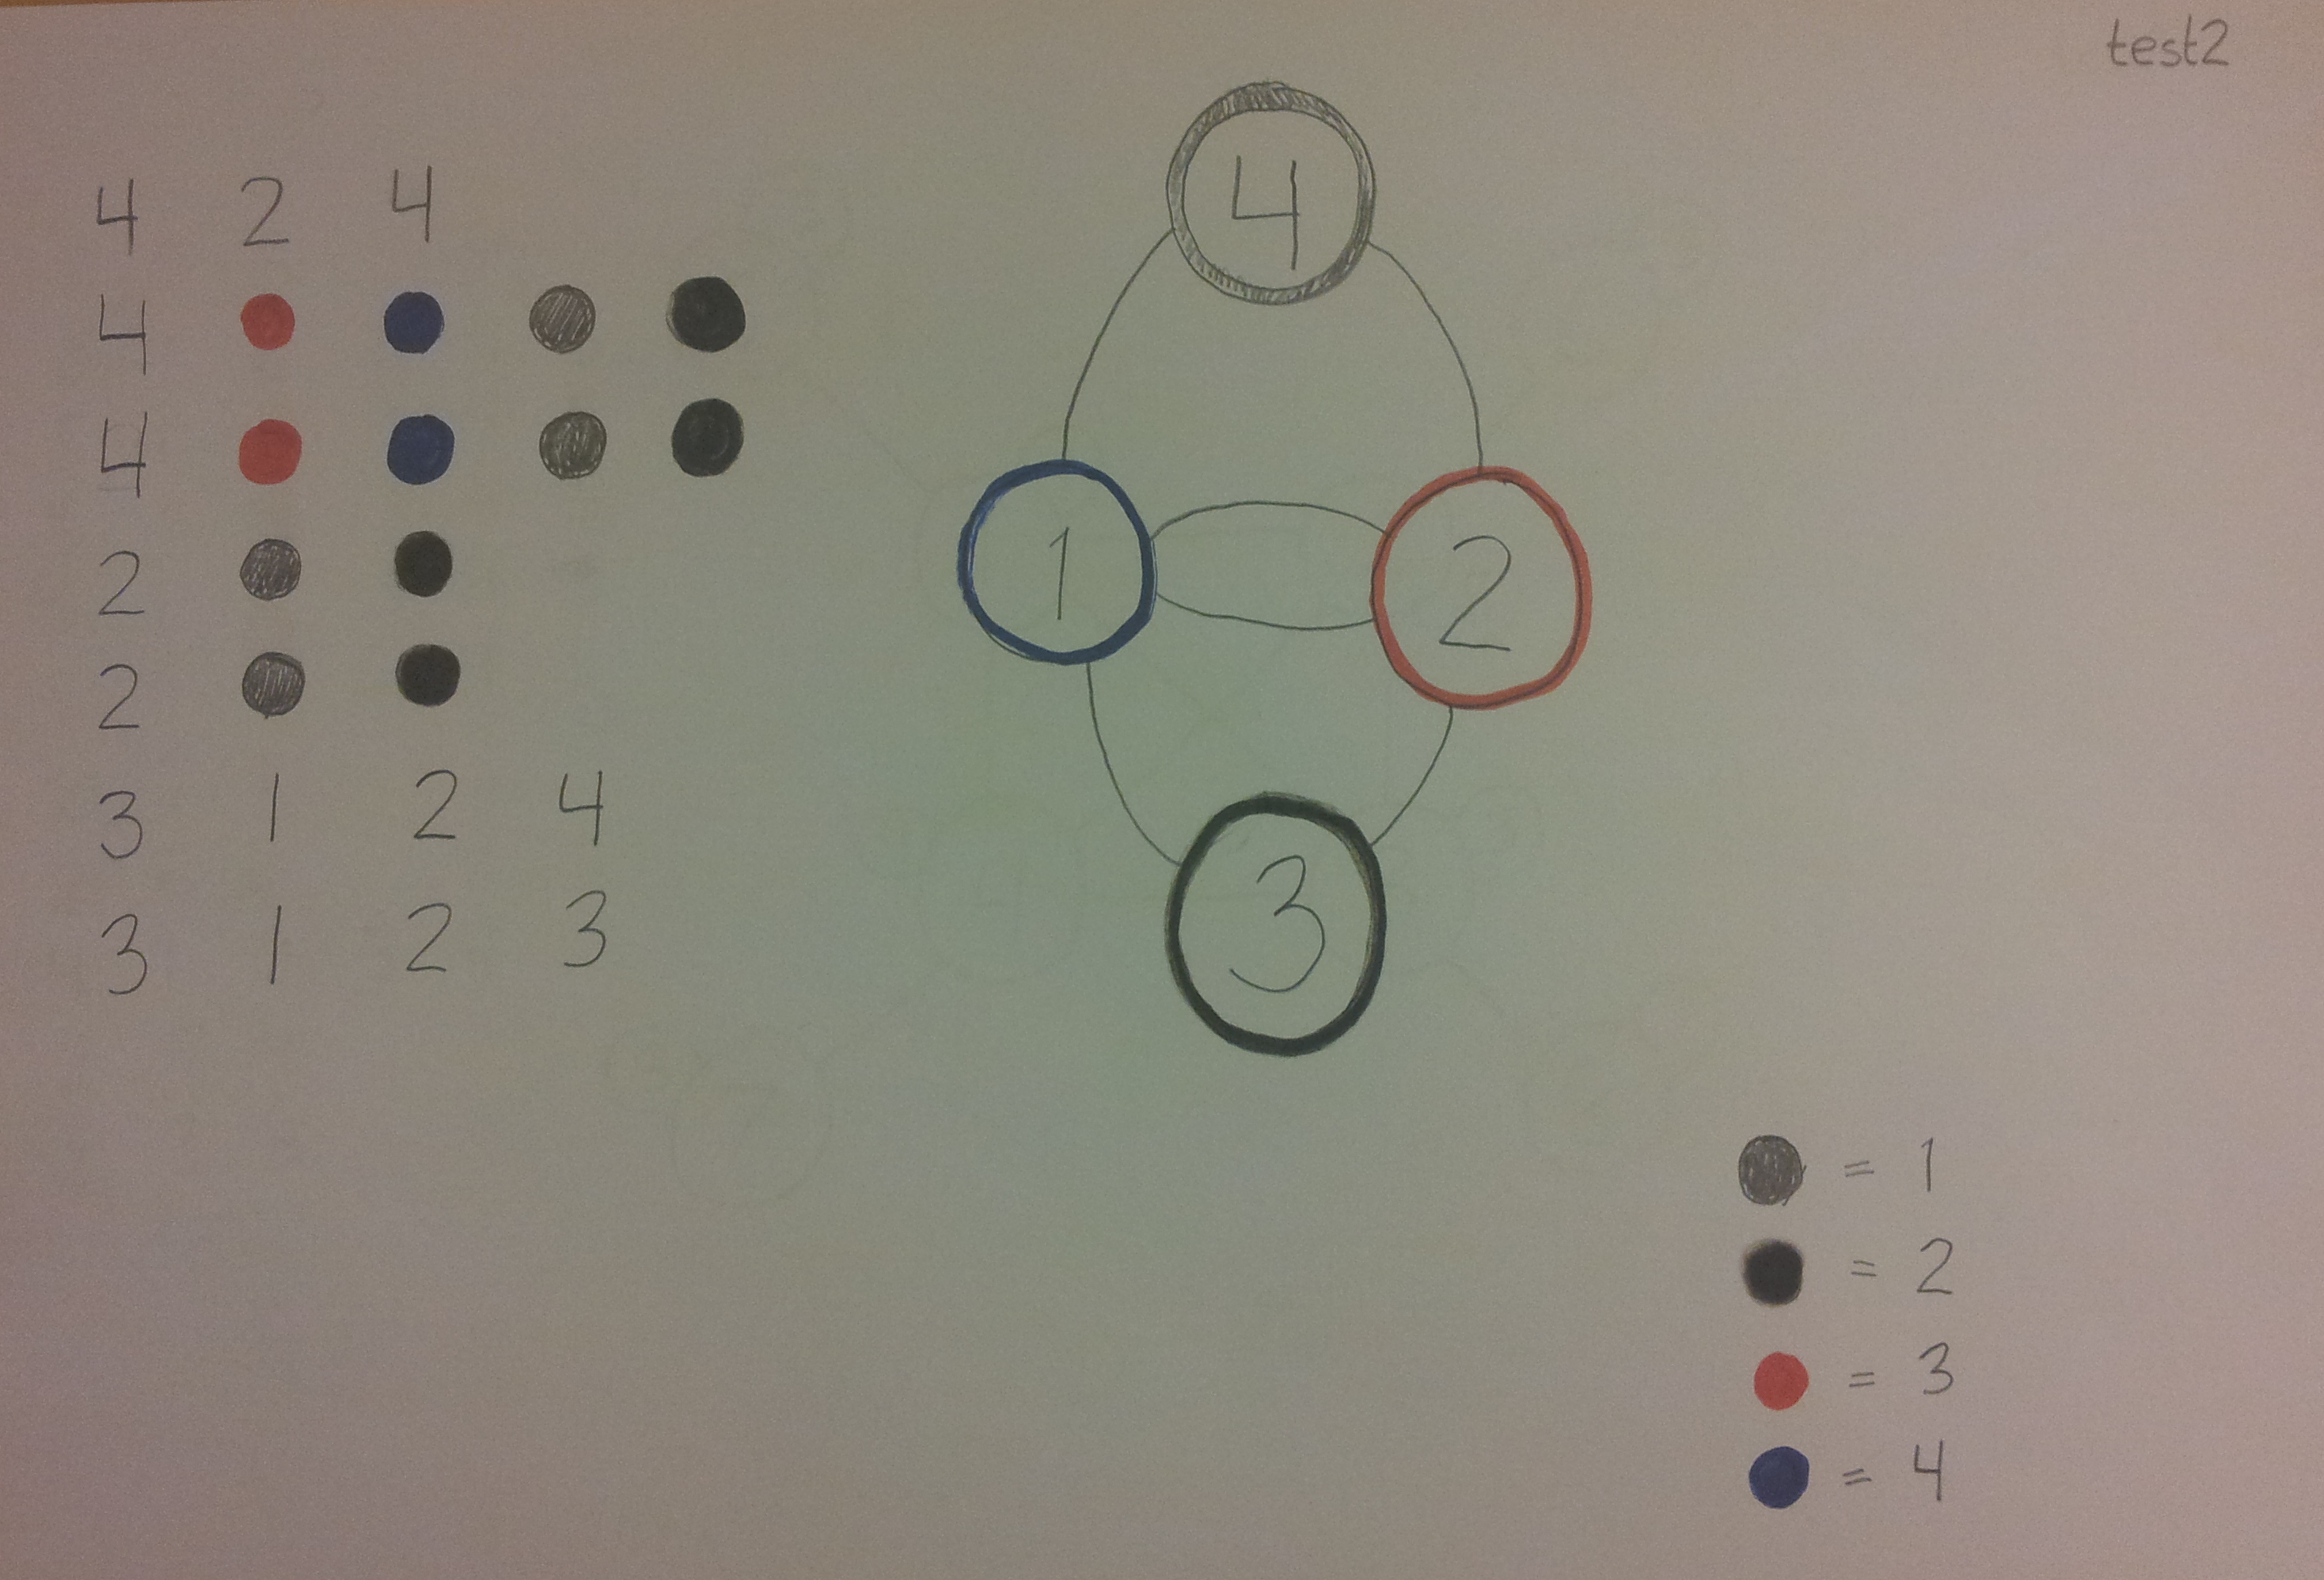 test2
4 2 4
4
4
2
2
3 1 2 4
3 1 2 3
4
1 2
3
= 1
= 2
= 3
= 4